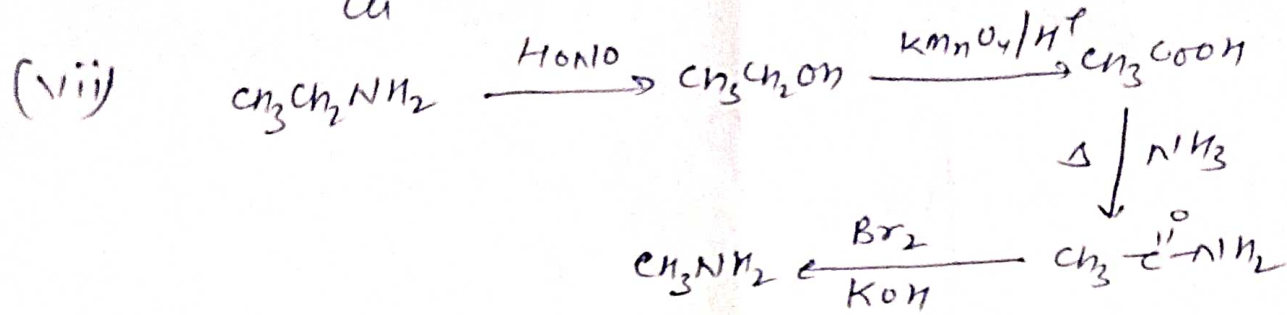 Cu
(vii) CH3CH2NH2 HONO → CH3CH2OH KMnO4/H⊕ → CH3COOH
Δ ↓ NH3
CH3NH2 ← Br2 KOH CH3-C(=O)-NH2